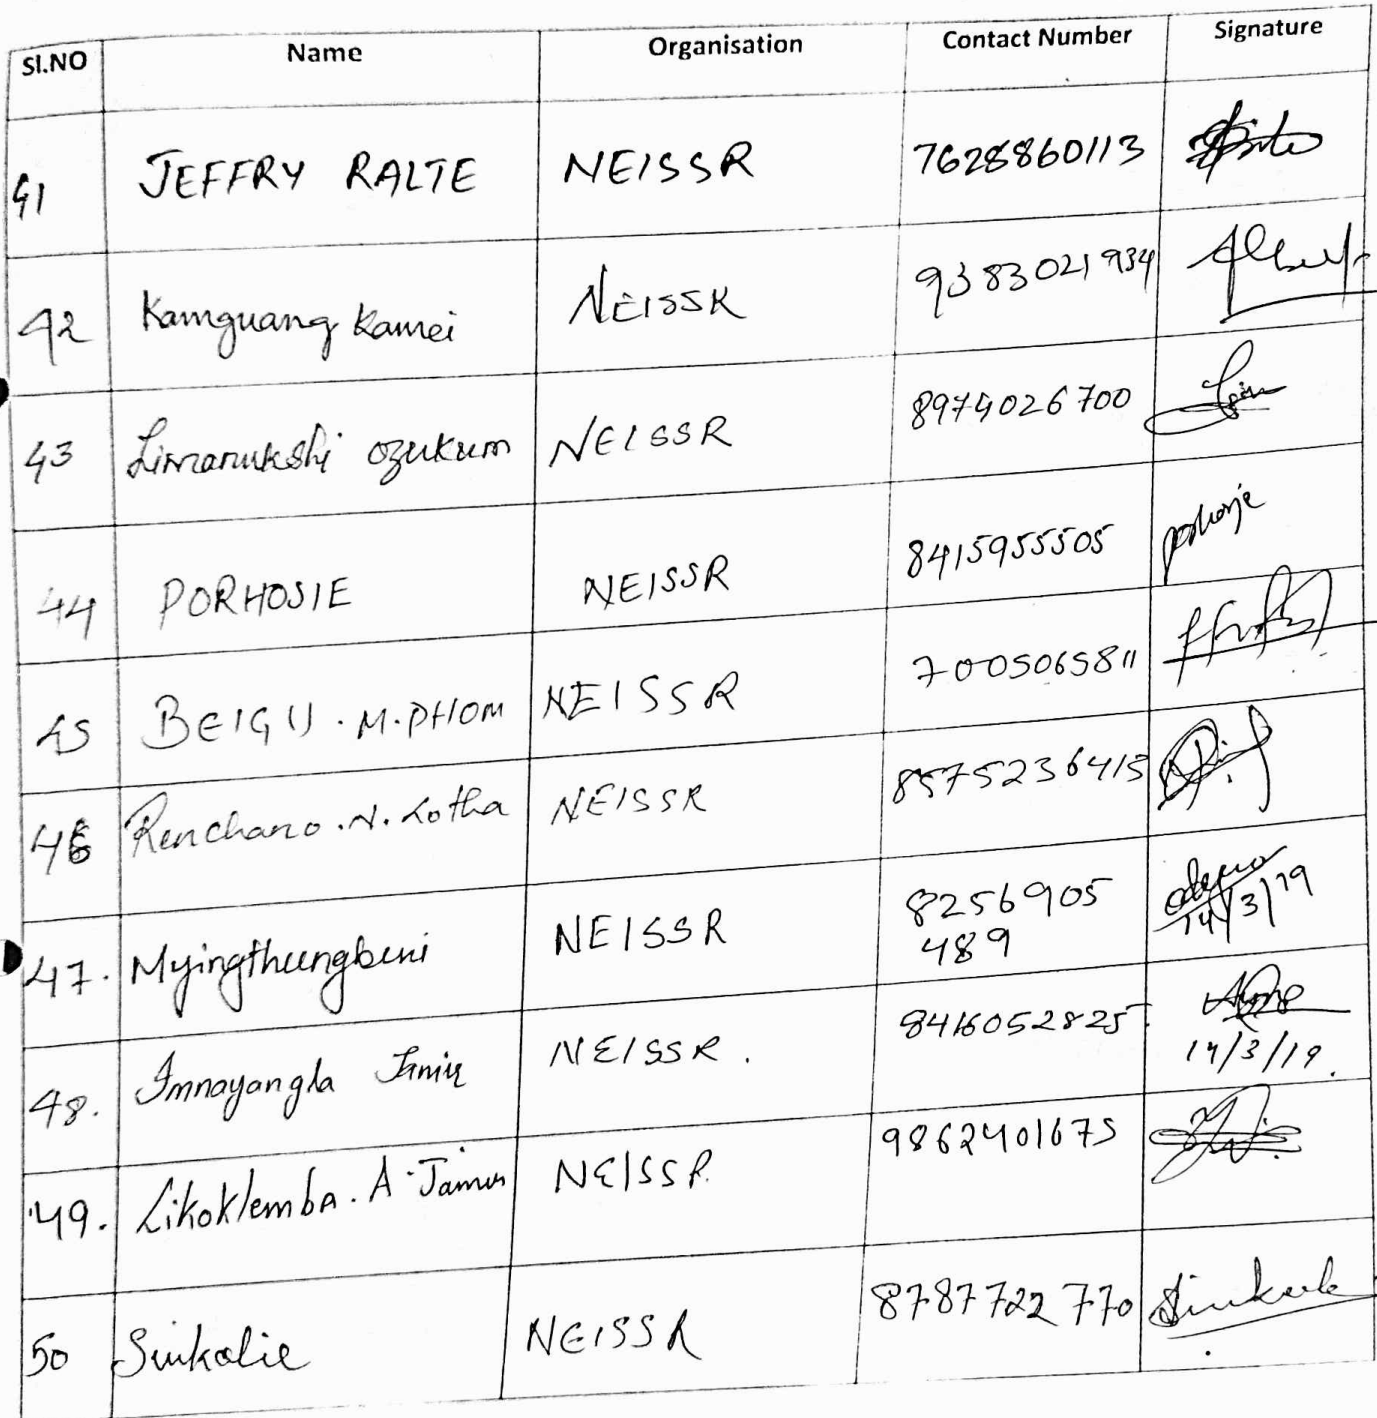 Sl.NO Name Organisation Contact Number Signature
41 JEFFRY RALTE NEISSR 7628860113
42 Kamguang Kamei NEISSR 9383021934
43 Limanukshi ozukum NEISSR 8974026700
44 PORHOSIE NEISSR 8415955505
45 BEIGU . M. PHOM NEISSR 7005065811
46 Renchano . N. Lotha NEISSR 8575236415
47. Myingthungbeni NEISSR 8256905
489 14/3/19
48. Imnayangla NEISSR . 8416052825
14/3/19.
49. Likoklemba . A . Jamir NEISSR 9862401675
50 Sinkalie NEISSR 8787722770